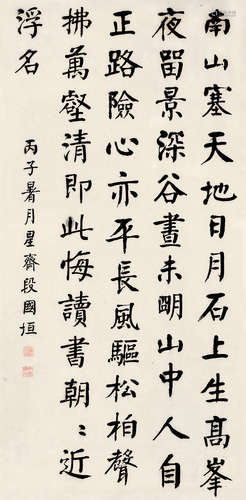 南山塞天地日月石上生髙峯
夜留景深谷晝未眀山中人自
正路險心亦平長風驅松柏聲
拂萬壑清即此悔讀書朝〻近
浮名
丙子暑月星齋段國垣